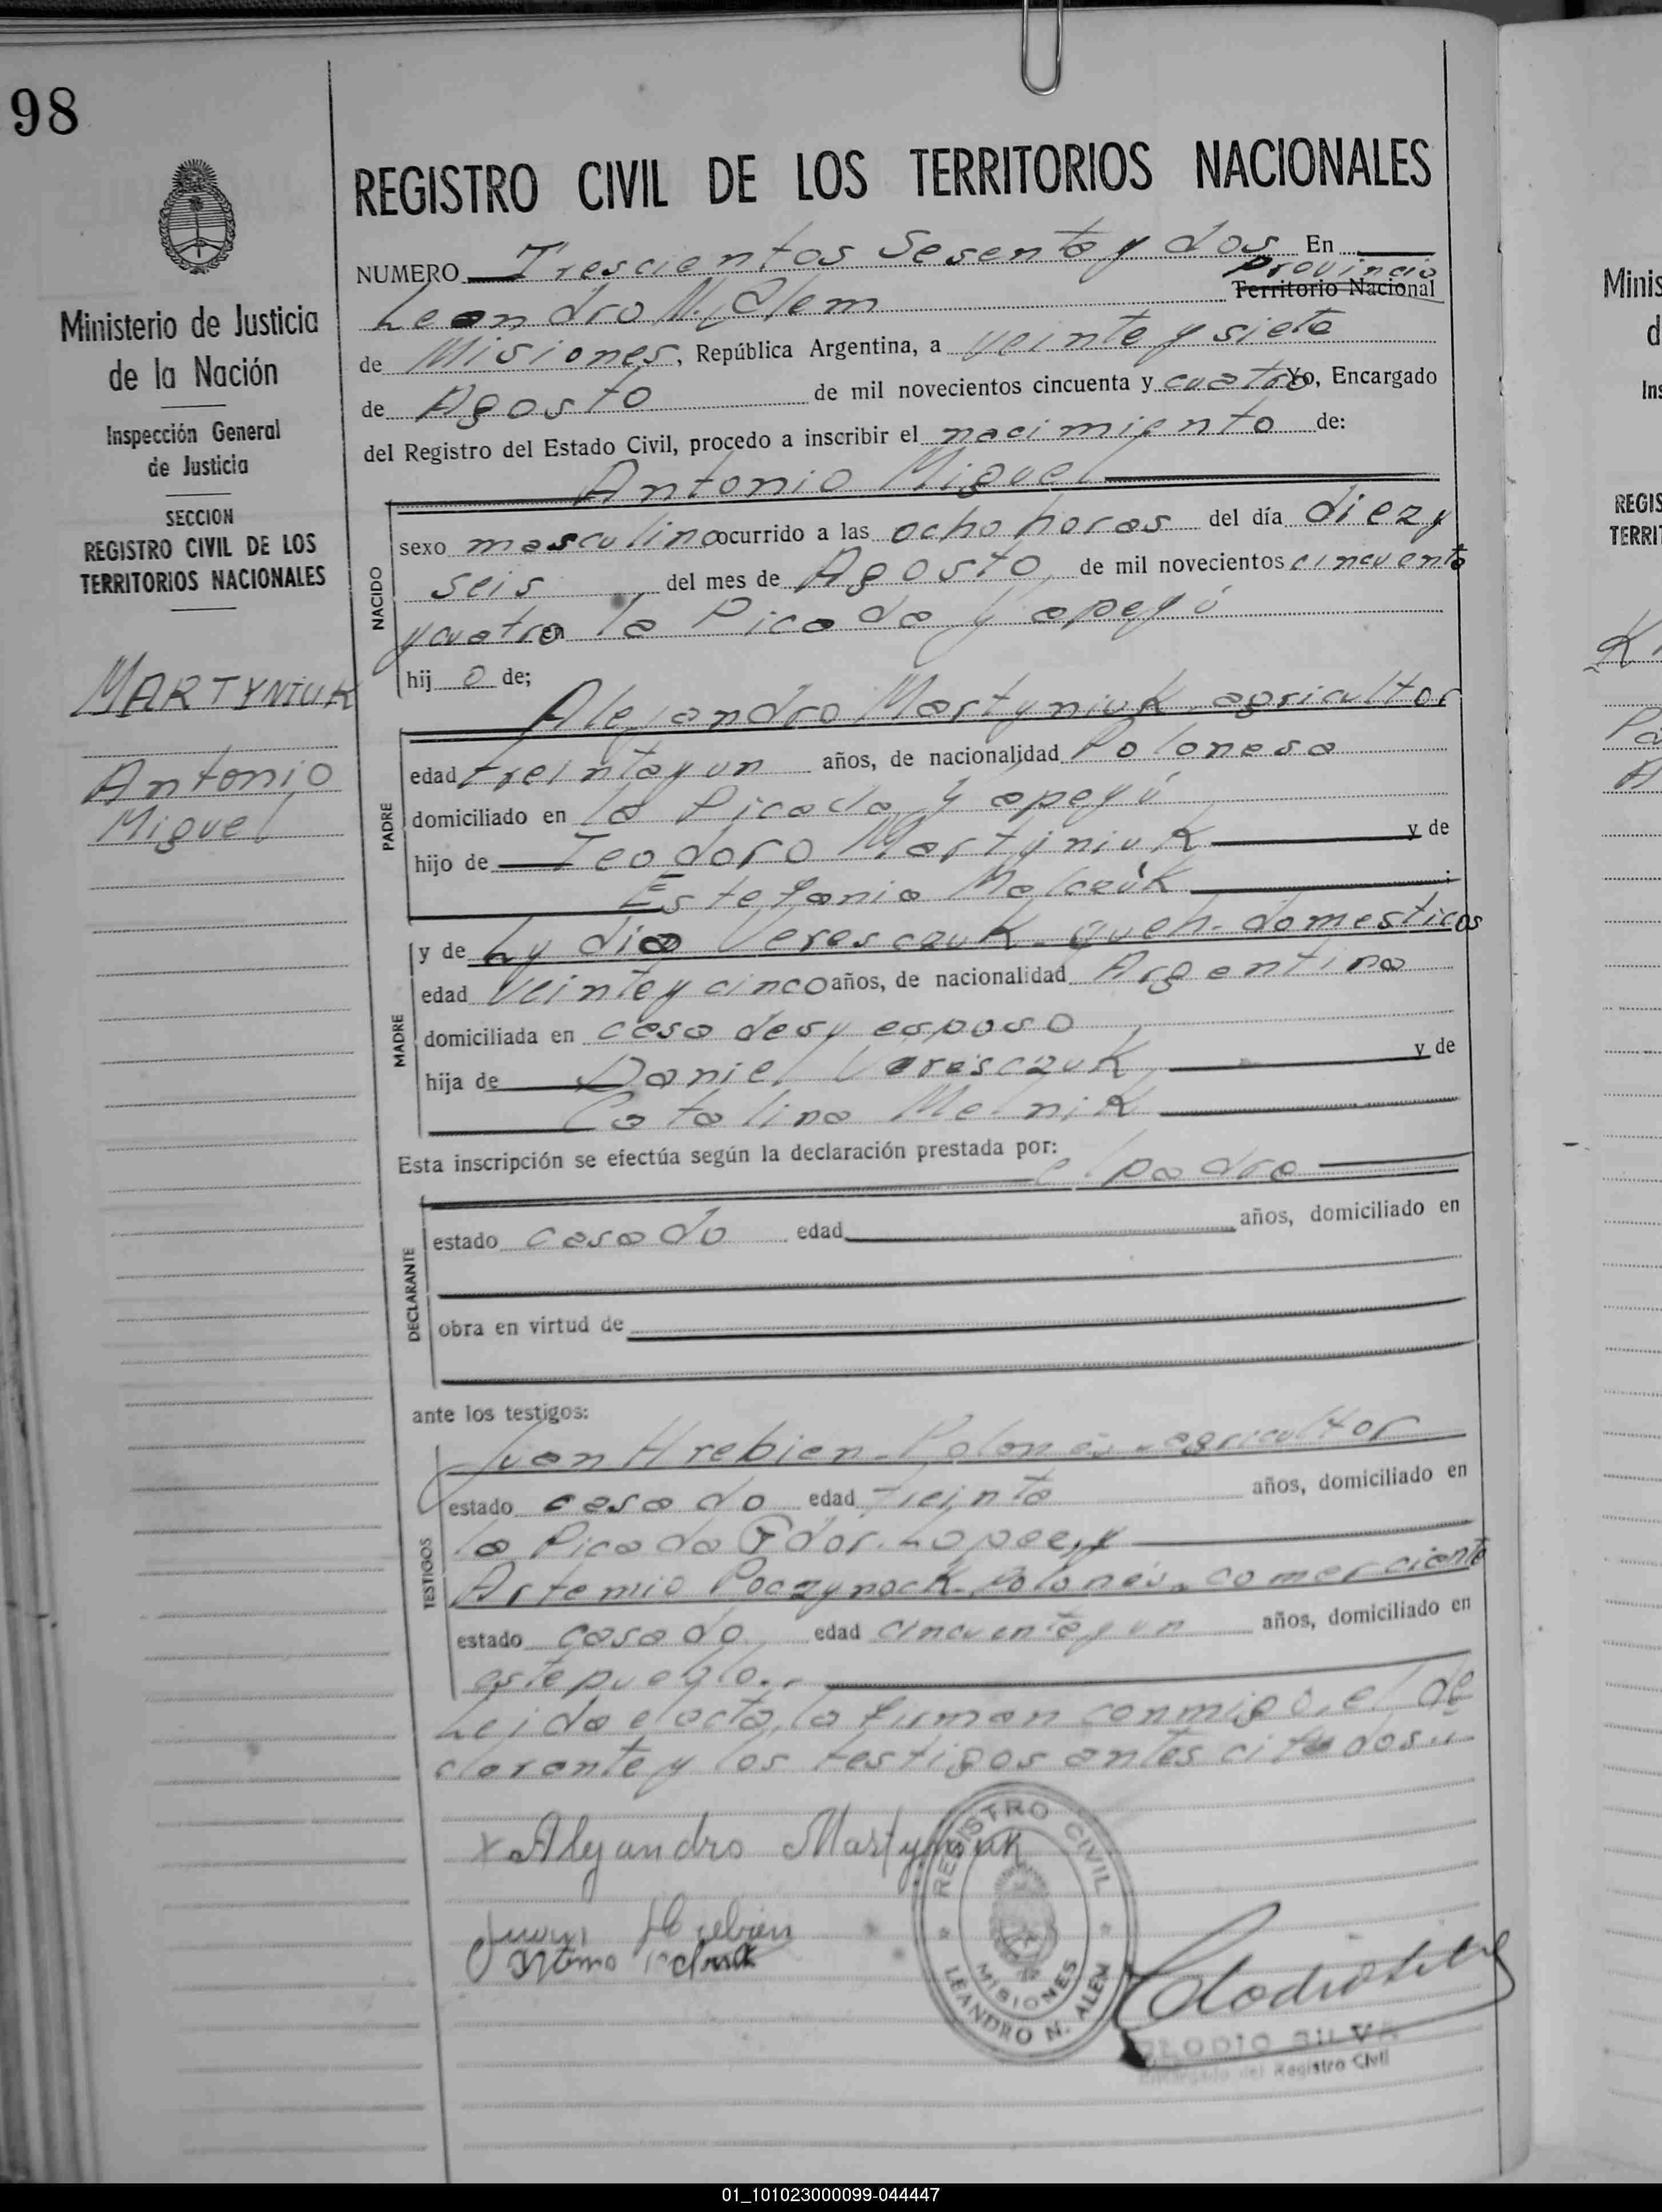 98
REGISTRO CIVIL DE LOS TERRITORIOS NACIONALES
NUMERO Trescientos Sesenta y dos En
Provincia
Leandro N. Alem Territorio Nacional
de Misiones, República Argentina, a veinte y siete
de Agosto de mil novecientos cincuenta y cuatro Yo, Encargado
del Registro del Estado Civil, procedo a inscribir el nacimiento de:
Antonio Miguel
NACIDO
sexo masculino ocurrido a las ocho horas del día diez y
seis del mes de Agosto, de mil novecientos cincuenta
y cuatro en la Picada Yapeyú
hij o de;
Alejandro Martyniuk, agricultor
PADRE
edad treinta y un años, de nacionalidad Polonesa
domiciliado en la Picada Yapeyú
hijo de Teodoro Martyniuk y de
Estefania Malczúk
MADRE
y de LydiaVeresczuk - queh. domesticos
edad veinte y cinco años, de nacionalidad Argentina
domiciliada en casa de su esposo
hija de Daniel Veresczuk y de
Catalina Melnik
Esta inscripción se efectúa según la declaración prestada por:
el padre
DECLARANTE
estado casado edad años, domiciliado en
obra en virtud de
ante los testigos:
TESTIGOS
Juan Hrebien - Polonés - agricultor
estado casado edad treinta años, domiciliado en
la Picada Gdor. Lopez, y
Artemio Poczynock - Polonés - comerciante
estado casado edad cincuenta y un años, domiciliado en
este pueblo..
Leida el acta, la firman conmigo, el de
clarante y los testigos antes citados..
x Alejandro Martyniuk
Juan Hrebien
REGISTRO CIVIL
MISIONES
LEANDRO N. ALEM
Clodio Silva
CLODIO SILVA
Encargado del Registro Civil
Ministerio de Justicia
de la Nación
Inspección General
de Justicia
SECCION
REGISTRO CIVIL DE LOS
TERRITORIOS NACIONALES
MARTYNIUK
Antonio
Miguel
Minis
d
Ins
REGIS
TERRI
01_101023000099-044447